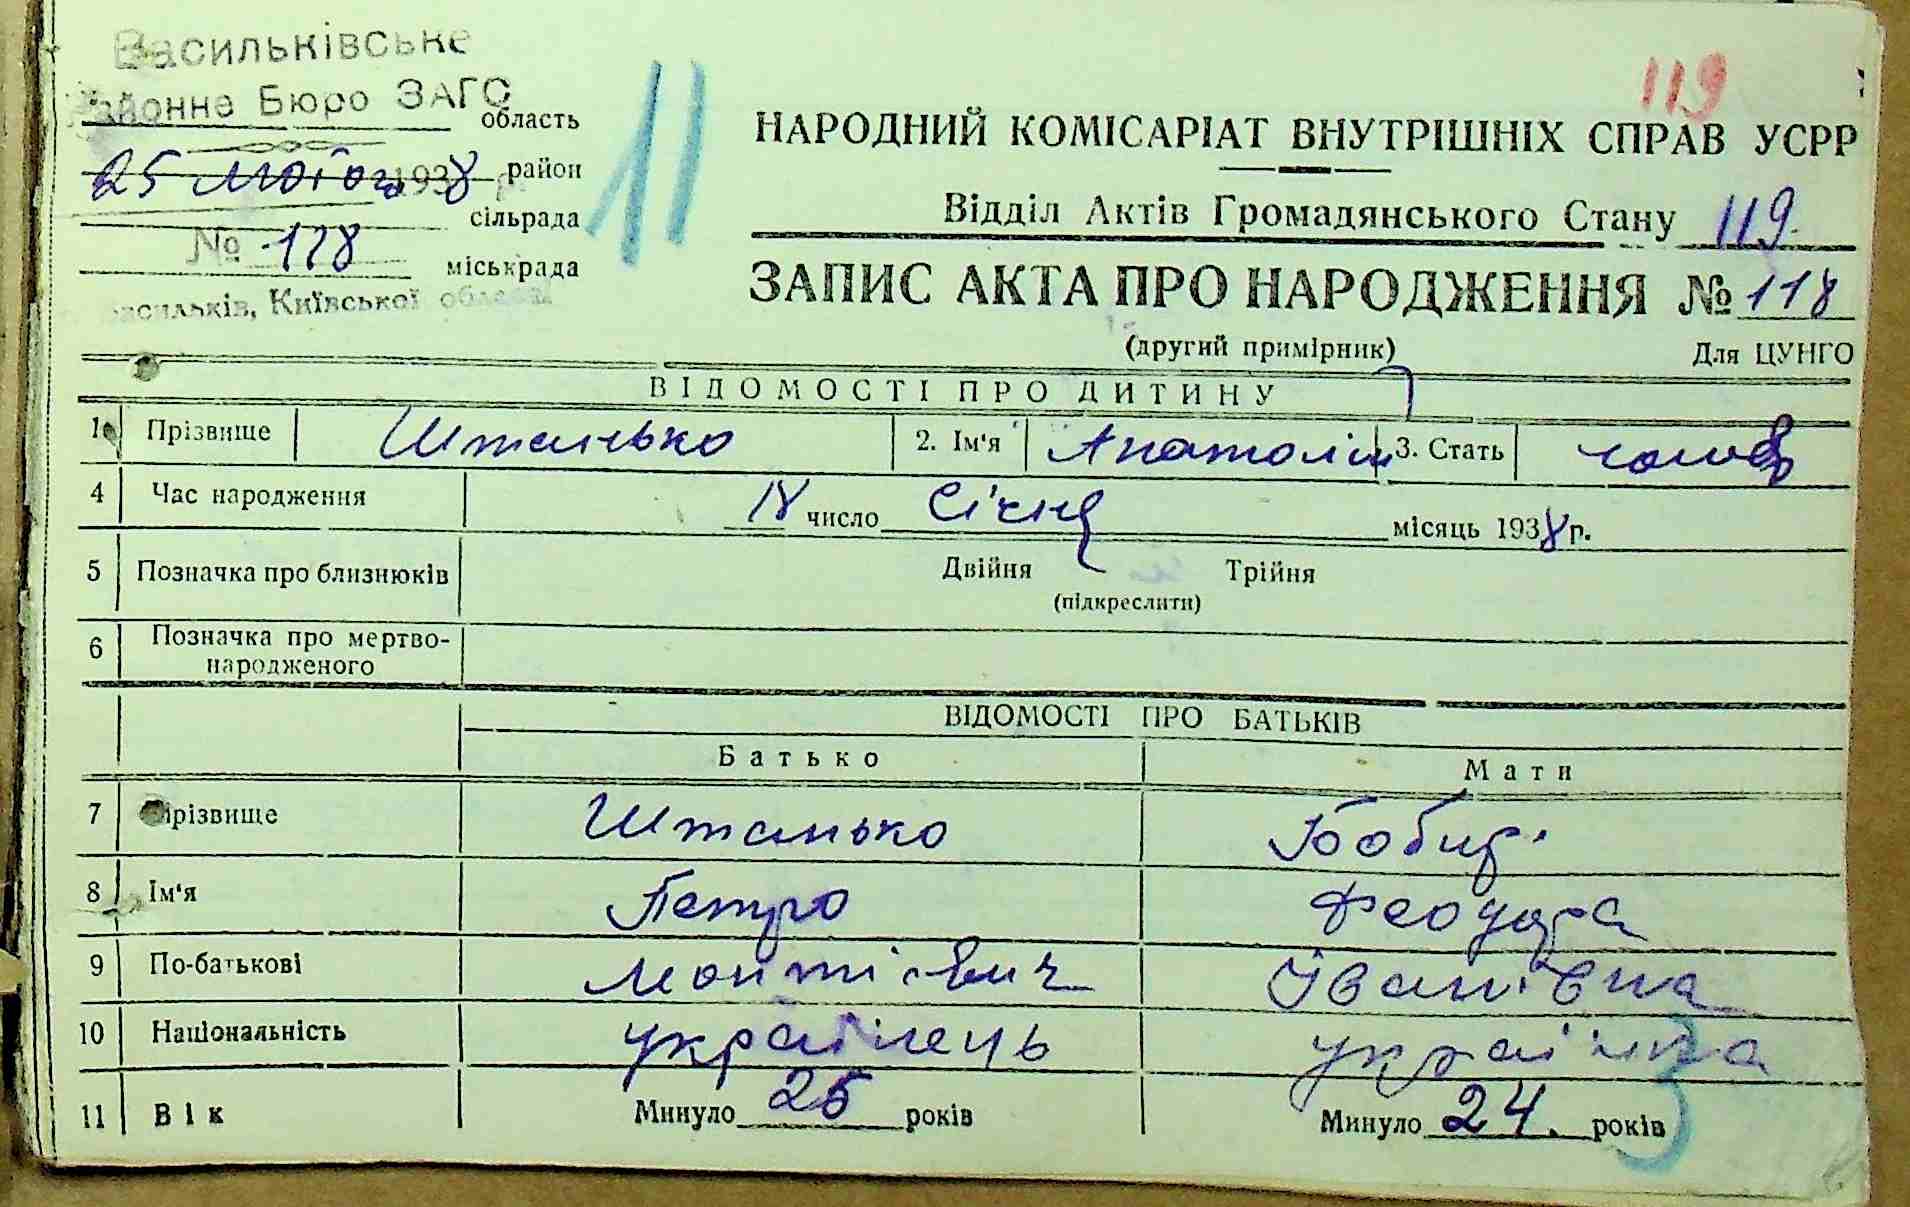 Васильківське
районне Бюро ЗАГС
область
25 лютого 1938 р. район
сільрада
№ 118
міськрада
Васильків, Київської області
11
119
НАРОДНИЙ КОМІСАРІАТ ВНУТРІШНІХ СПРАВ УСРР
Відділ Актів Громадянського Стану 119
ЗАПИС АКТА ПРО НАРОДЖЕННЯ № 118
(другий примірник) Для ЦУНГО
ВІДОМОСТІ ПРО ДИТИНУ
1 Прізвище Штанько 2. Ім'я Анатолій 3. Стать
4 Час народження 18 число Січня місяць 1938 р.
5 Позначка про близнюків Двійня Трійня
(підкреслити)
6 Позначка про мертво-
народженого
ВІДОМОСТІ ПРО БАТЬКІВ
Батько Мати
7 Прізвище Штанько Бобир
8 Ім'я Петро Феодора
9 По-батькові Іванівна
10 Національність українець українка
11 Вік Минуло 25 років Минуло 24. років
3